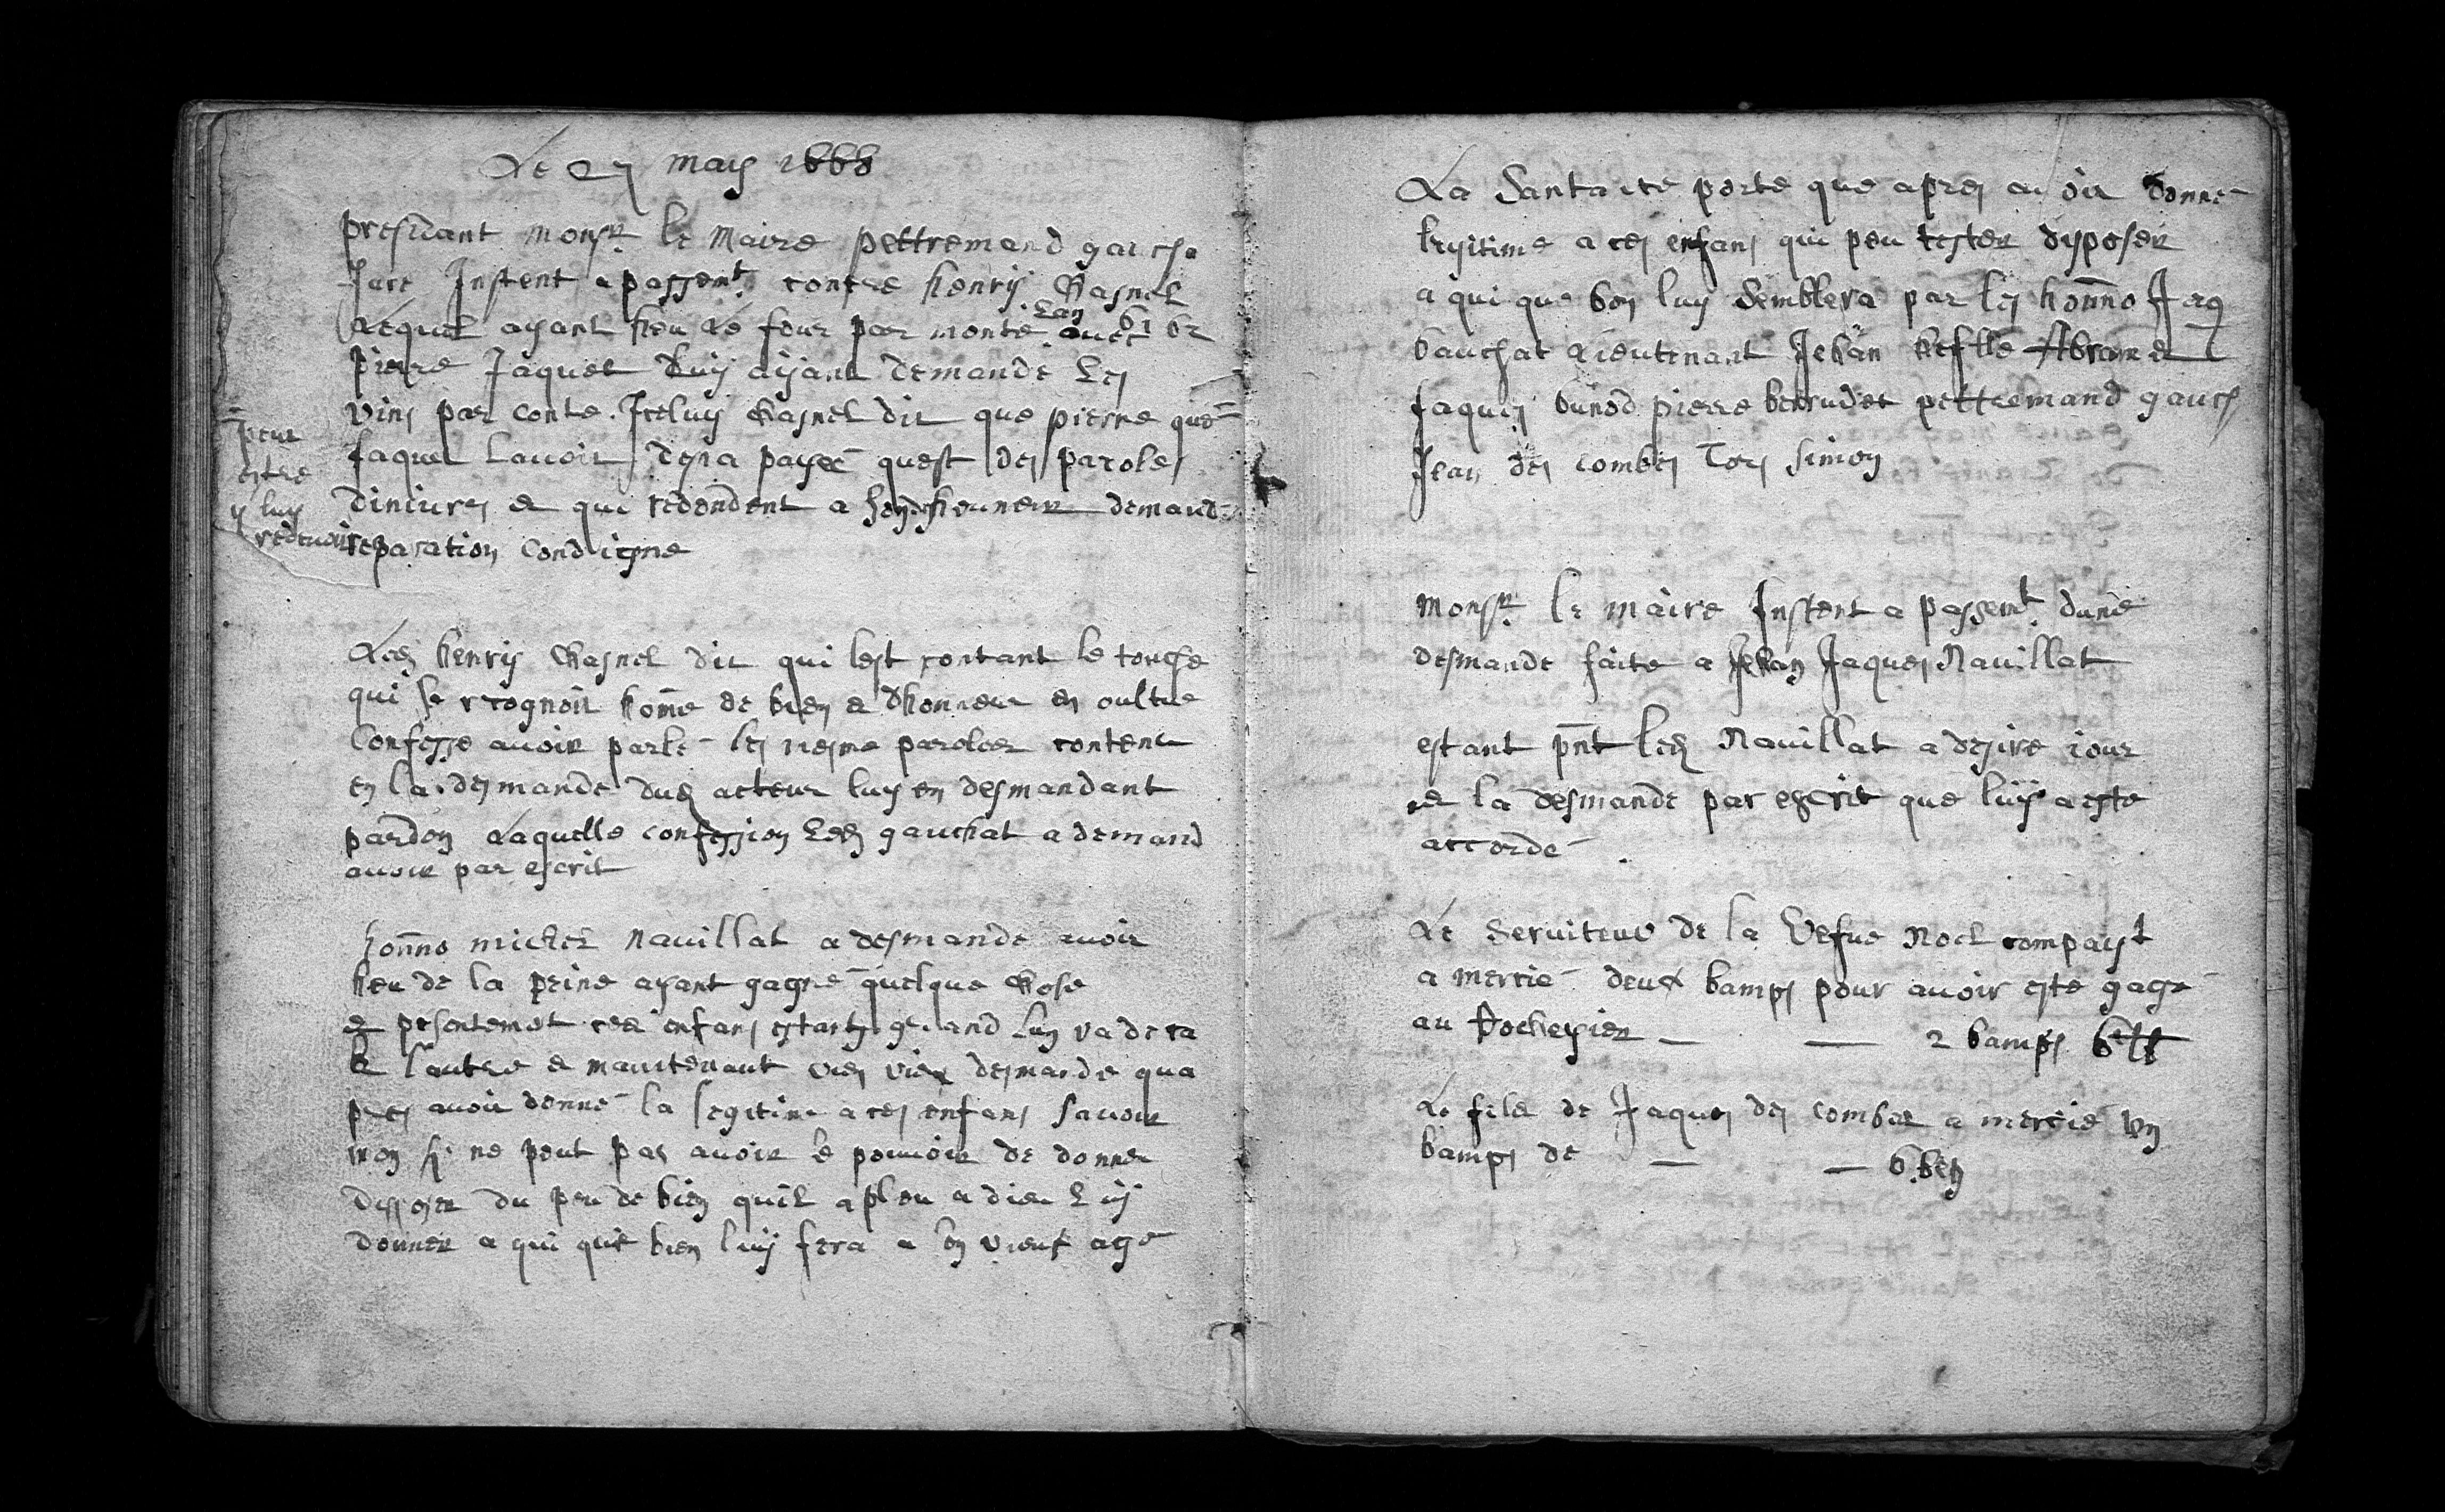 Le 27 may 1668
presidant monsr le Maire pettremand gauch
Jure Instent a passemt contre henry Chasnel
Lequel ayant heu le four par monte Lan 61 62
Pierre Jaquet luy ayant demande Les
vins par conte. Jceluy Chasnel dit que pierre que
Jaquet lauoit desja payee quest des paroles
diniures & qui redondent a son dhonneur demande
reparation Condigne
peut
estre
y luy
redeuoir
Led henry Chasnel dit qui lest contant le touche
qui le recognoit home de bien & dhonneur en oultre
Confesse auoir parle les mesme paroles contenu
en la desmande dud acteur luy en desmandant
pardon Laquelle confession Led gauchat a demand
auoir par escrit
honno michel Nauillat a desmande auoir
heu de la peine ayant gagne quelque chose
& presentemet ces enfans estants grand Lun va deca
& lautre & maintenant vien vieux desmande qua
pres auoir donne la legitime a ces enfans sauoir
mon sy ne peut pas auoir le pouuoir de donner
disposer du peu de bien quil a pleu a dieu Luy
donner a qui que bien luy fera a son vieux age
La Santance porte que apres auoir donne
legitime a ces enfans qui peu tester disposer
a qui que bon luy Semblera par les honno Jaq
bauchat Lieutenant Jehan Abrame
Jaques bunod pierre berrudet pettremand gauch
Jean des combes Tory simon
monsr le maire Instent a passemt dune
desmande faite a Jehan Jaques Nauillat
estant pnt led Nauillat a desire iour
& la desmande par escrit que luy a este
accorde
Le seruiteur de la Vefue Noel compayt
a mercie deux bamps pour auoir este gage
au — — 2 bamps 6 ll
Le fils de Jaques des combes a mercie vn
bamps de — — 6 bz